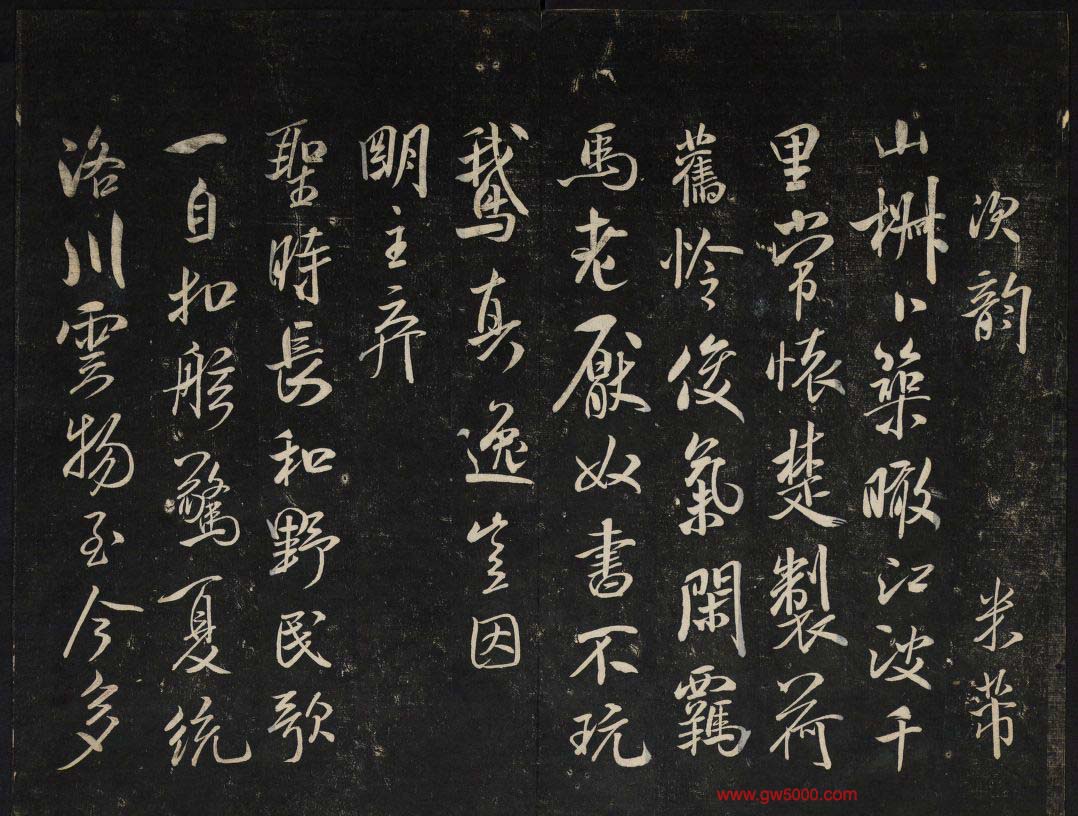 次韵 米芾
山椒卜築瞰江波千
里常懷楚製荷
舊怜俊氣閑羈
馬老厭奴書不玩
鵝真逸豈因
明主弃
聖時長和野民歌
一自扣舷驚夏統
洛川雲物至今多
www.gw5000.com